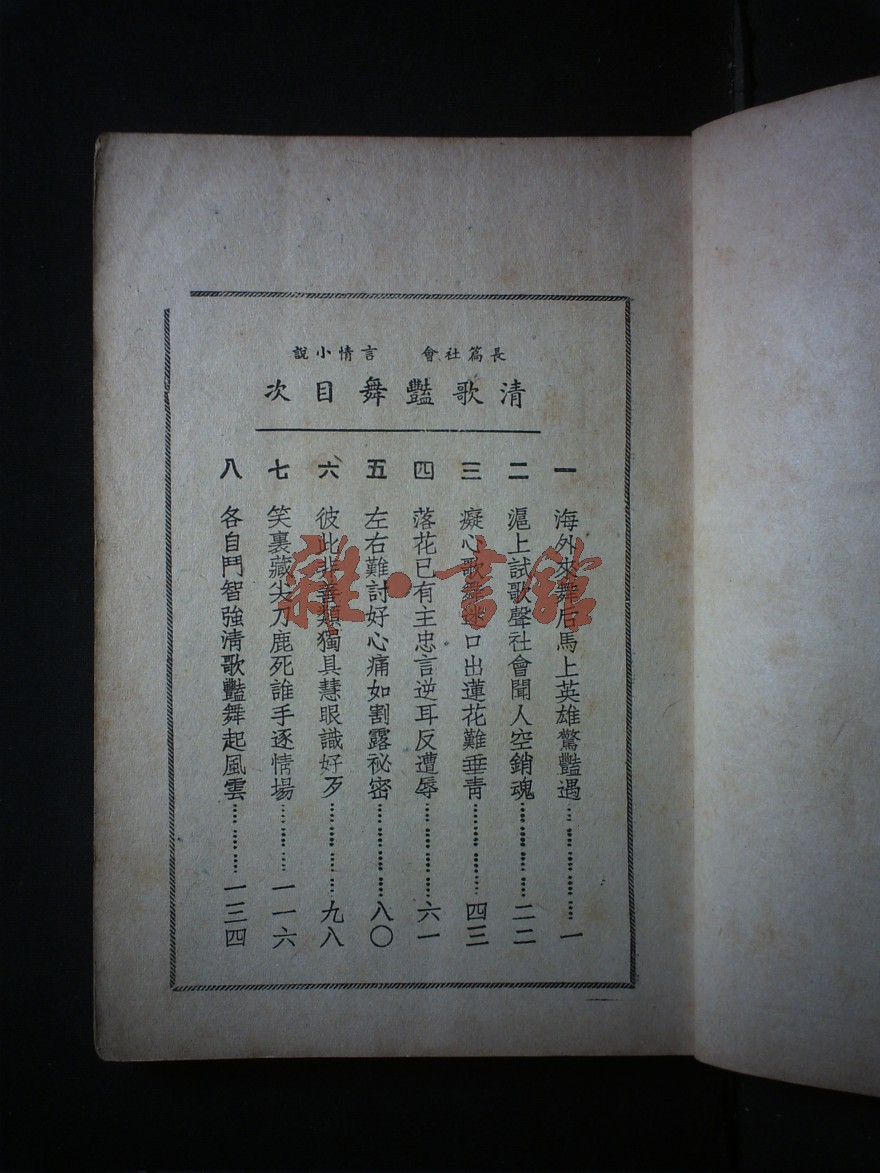 長篇社會 言情小說
清歌豔舞目次
一 海外來舞后馬上英雄驚豔遇…………………一
二 滬上試歌聲社會聞人空銷魂……………二二
三 癡心歌舞迷口出蓮花難垂青……………四三
四 落花已有主忠言逆耳反遭辱……………六一
五 左右難討好心痛如割露祕密……………八〇
六 彼此非善類獨具慧眼識好歹……………九八
七 笑裏藏尖刀鹿死誰手逐情場…………一一六
八 各自鬥智強清歌豔舞起風雲…………一三四
雜·書館